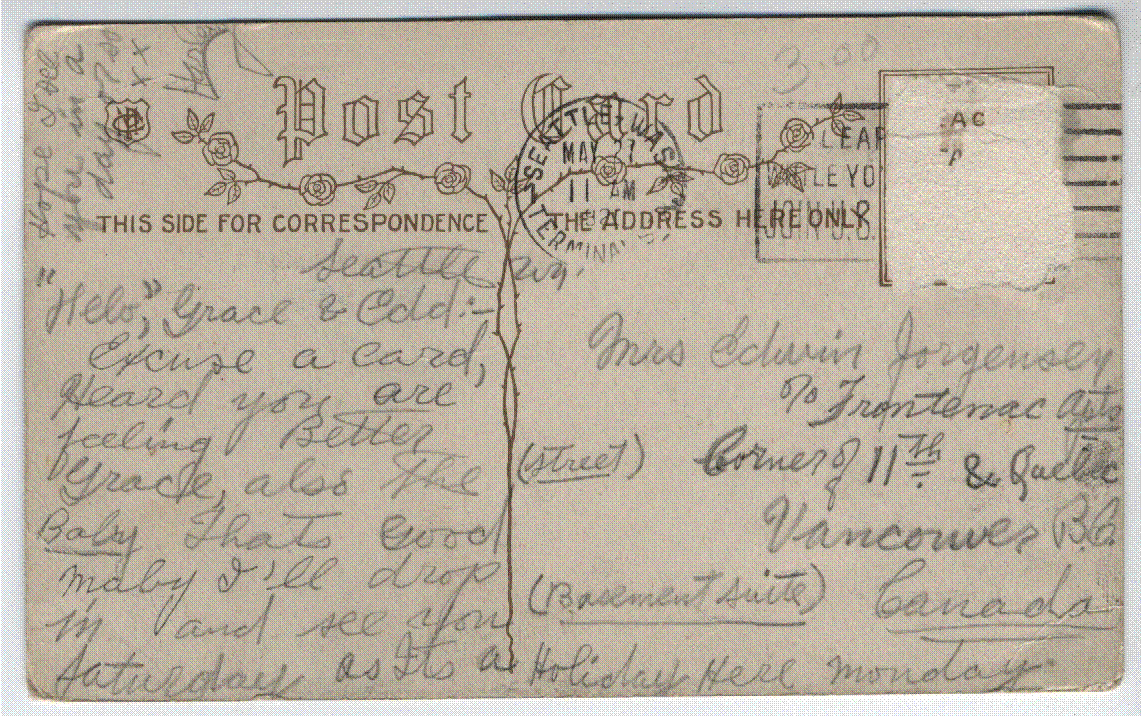 Post Card
THIS SIDE FOR CORRESPONDENCE
THE ADDRESS HERE ONLY
SEATTLE, WASH.
MAY 27
11 AM
TERMINAL
LEAR
WHILE YO
JOIN U.S.
3.00
AC
Seattle Wn.
"Helo", Grace & Edd:-
Excuse a card,
Heard you are
feeling Better
Grace, also The
Baby Thats Good
maby I'll drop
in and see you
Saturday as Its a Holiday Here Monday.
Hope I see
you in a
day or so
xx
Mrs Edwin Jorgensey
c/o Frontenac Apts
(street) Corner of 11th & Quebec
Vancouver B.C.
(Basement suite) Canada